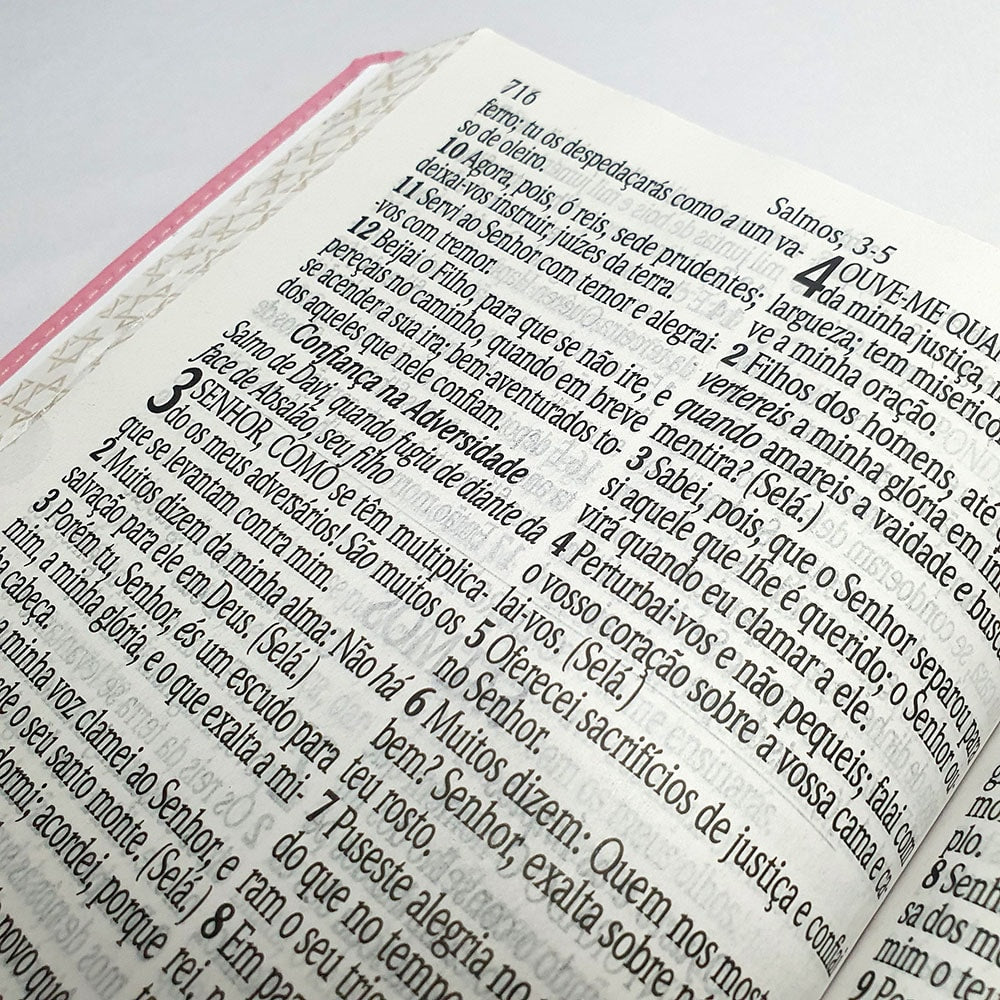 716
Salmos, 3-5
ferro; tu os despedaçarás como a um va-
so de oleiro.
10 Agora, pois, ó reis, sede prudentes;
deixai-vos instruir, juízes da terra.
11 Servi ao Senhor com temor e alegrai-
-vos com tremor.
12 Beijai o Filho, para que se não ire, e
pereçais no caminho, quando em breve
se acender a sua ira; bem-aventurados to-
dos aqueles que nele confiam.
Confiança na Adversidade
Salmo de Davi, quando fugiu de diante da
face de Absalão, seu filho
3 SENHOR, COMO se têm multiplica-
do os meus adversários! São muitos os
que se levantam contra mim.
2 Muitos dizem da minha alma: Não há
salvação para ele em Deus. (Selá.)
3 Porém tu, Senhor, és um escudo para
mim, a minha glória, e o que exalta a mi-
cabeça.
a minha voz clamei ao Senhor, e
o seu santo monte. (Selá.)
acordei, porque
novo que
4 OUVE-ME
da minha justiça,
largueza; tem
ve a minha oração.
2 Filhos dos homens, até
vertereis a minha glória em
quando amareis a vaidade e
mentira? (Selá.)
3 Sabei, pois, que o Senhor separou para
si aquele que lhe é querido; o Senhor
virá quando eu clamar a ele.
4 Perturbai-vos e não pequeis; falai com
o vosso coração sobre a vossa cama e ca-
lai-vos. (Selá.)
5 Oferecei sacrifícios de justiça e
no Senhor.
6 Muitos dizem: Quem nos
bem? Senhor, exalta sobre
teu rosto.
7 Puseste alegria no
do que no tempo
ram o seu
8 Em
plo.
8
sa dos
mim o
9